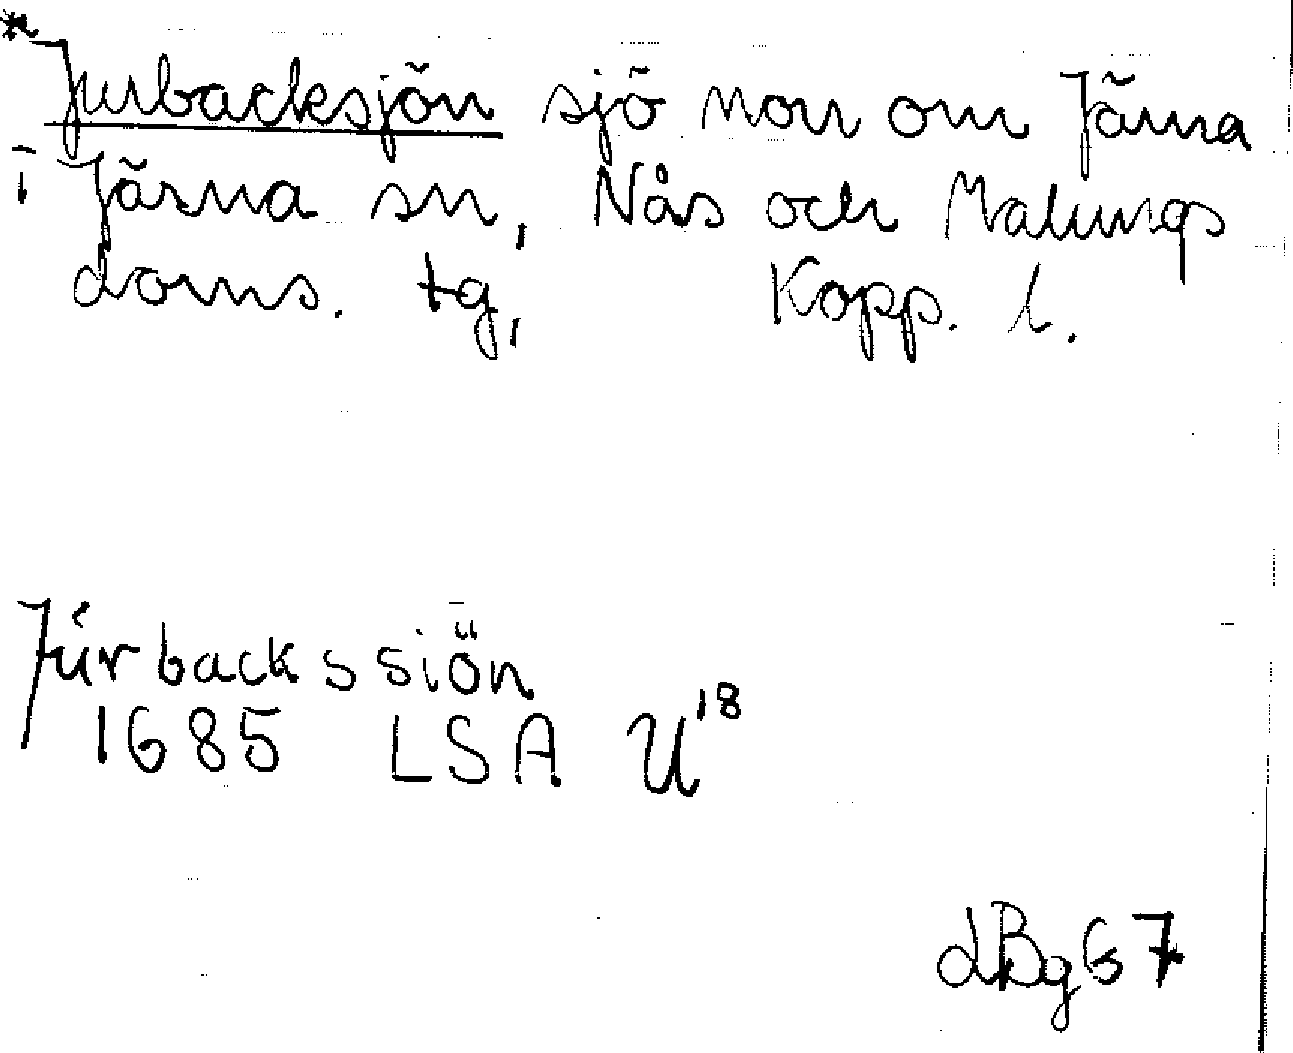 * Jurbacksjön sjö norr om Järna
i Järna sn, Nås och Malungs
doms. tg, Kopp. l.
Júrbackssiön
1685 LSA U18
LBg67